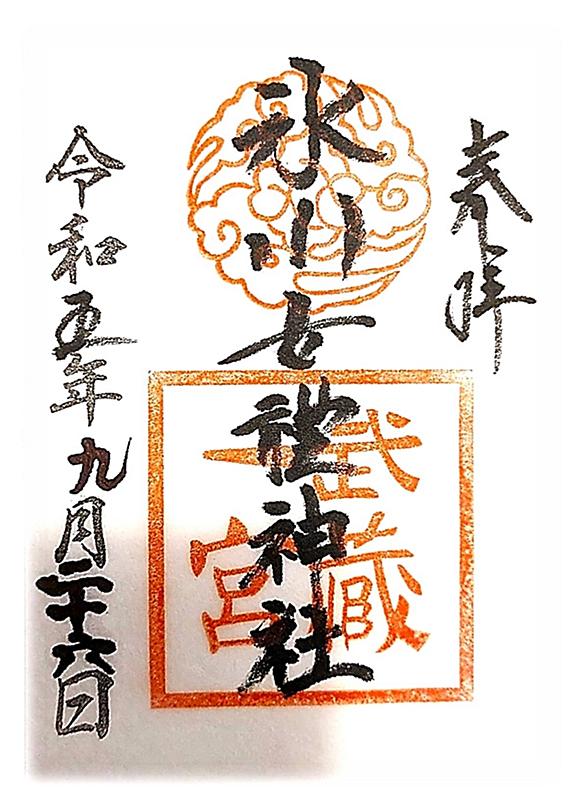 奉拝
氷川女體神社
武蔵
一宮
令和五年九月二十六日